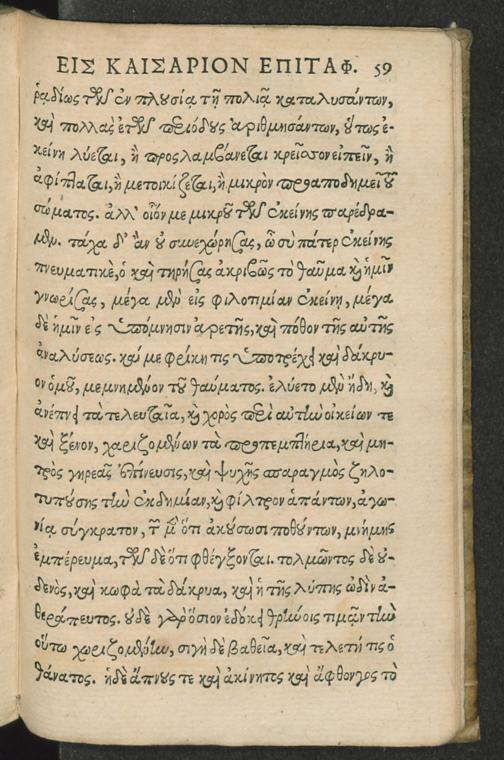 ΕΙΣ ΚΑΙΣΑΡΙΟΝ ΕΠΙΤΑΦ. 59
ῥᾳδίως τῶν ἐν πλυσίᾳ τῇ πολιᾷ καταλυσάντων,
καὶ πολλὰς ἐτῶν περιόδους ἀριθμησάντων, οὕτως ἐ-
κείνη λύεται, ἢ προσλαμβάνεται κρεῖσσον εἰπεῖν, ἢ
ἀφίπλαται, ἢ μετοικίζεται, ἢ μικρὸν προαποδημεῖ τοῦ
σώματος. ἀλλ' οἷόν με μικροῦ τῶν ἐκείνης παρέδρα-
μεν. τάχα δ' ἂν οὐ συνεχώρησας, ὦ σὺ πάτερ ἐκείνης
πνευματικὲ, ὁ καὶ τηρήσας ἀκριβῶς τὸ θαῦμα καὶ ἡμῖν
γνωρίσας, μέγα μὲν εἰς φιλοτιμίαν ἐκείνη, μέγα
δὲ ἡμῖν εἰς ὑπόμνησιν ἀρετῆς, καὶ πόθον τῆς αὐτῆς
ἀναλύσεως. καί με φρίκη τις ὑποτρέχει καὶ δάκρυ-
ον ὁμοῦ, μεμνημένον τοῦ θαύματος. ἐλύετο μὲν ἤδη, καὶ
ἀνέπνει τὰ τελευταῖα, καὶ χορὸς περὶ αὐτὴν οἰκείων τε
καὶ ξένον, χαριζομένων τὰ προπεμπτήρια, καὶ μη-
τρὸς γηρεᾶς ἐπίνευσις, καὶ ψυχῆς σπαραγμὸς ζηλο-
τυπούσης τὴν ἐκδημίαν, καὶ φίλτρον ἁπάντων, ἀγω-
νίᾳ σύγκρατον, τῶν μὲν ὅτι ἀκούσωσι ποθούντων, μνήμης
ἐμπέρευμα, τῶν δὲ ὅτι φθέγξονται. τολμῶντος δὲ οὐ-
δενὸς, καὶ κωφὰ τὰ δάκρυα, καὶ ἡ τῆς λύπης ὠδὶν ἀ-
θεράπευτος. οὐδὲ γὰρ ὅσιον ἐδόκει θρήνοις τιμᾶν τὴν
οὕτω χωριζομένην, σιγὴ δὲ βαθεῖα, καὶ τελετή τις ὁ
θάνατος. ἡ δὲ ἄπνους τε καὶ ἀκίνητος καὶ ἄφθογγος τὸ